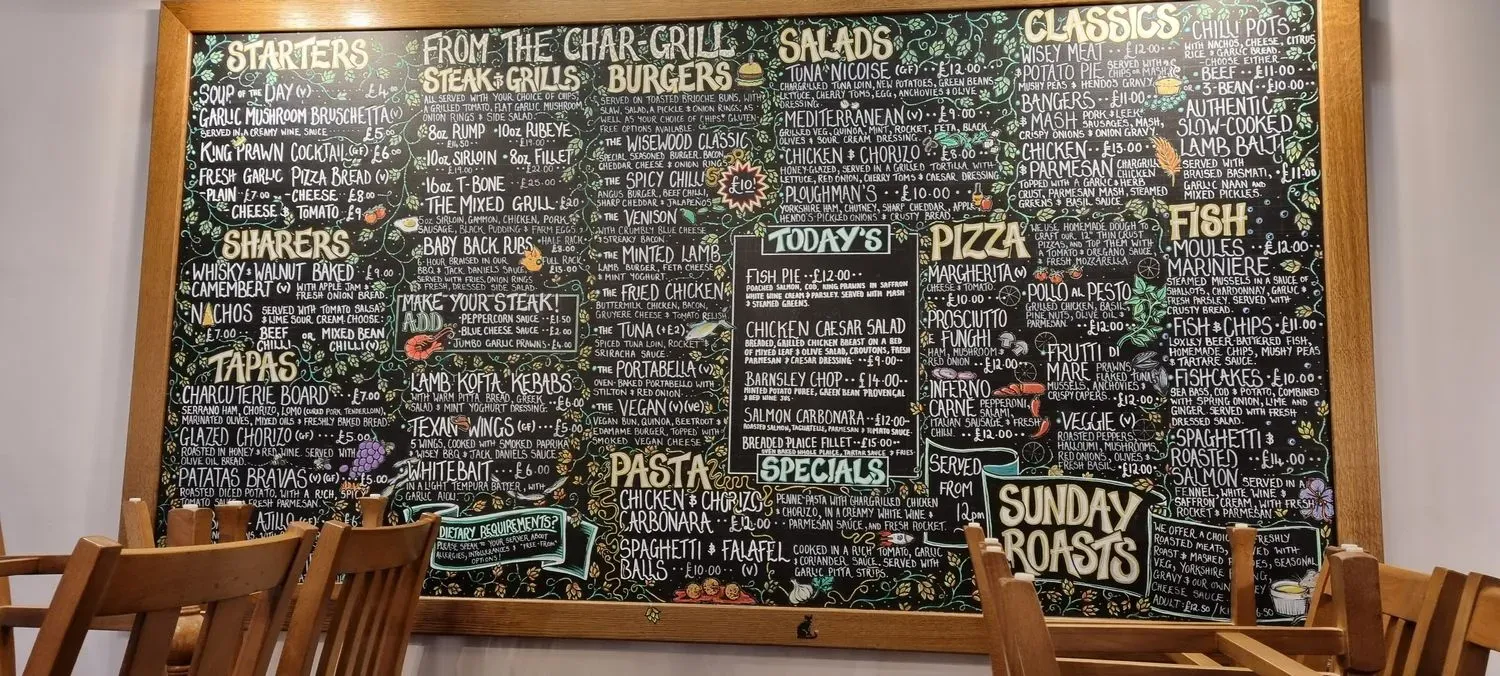 STARTERS
SOUP OF THE DAY (V) £4
GARLIC MUSHROOM BRUSCHETTA (V)
SERVED IN A CREAMY WINE SAUCE £5
KING PRAWN COCKTAIL (GF) £6
FRESH GARLIC PIZZA BREAD (V)
-PLAIN ·£7.00 -CHEESE ·£8.00
CHEESE & TOMATO £9
SHARERS
WHISKY & WALNUT BAKED £9.00
CAMEMBERT (V) WITH APPLE JAM &
FRESH ONION BREAD
NACHOS SERVED WITH TOMATO SALSA
& LIME SOUR CREAM. CHOOSE:
£7.00 BEEF CHILLI OR MIXED BEAN CHILLI (V)
TAPAS
CHARCUTERIE BOARD £7.00
SERRANO HAM, CHORIZO, LOMO (CURED PORK TENDERLOIN),
MARINATED OLIVES, MIXED OILS & FRESHLY BAKED BREAD
GLAZED CHORIZO (GF) £5.00
ROASTED IN HONEY & RED WINE. SERVED WITH
OLIVE OIL BREAD
PATATAS BRAVAS (V) (GF) £5.00
ROASTED DICED POTATO, WITH A RICH, SPICY
TOMATO SAUCE & FRESH PARMESAN
AJILLO
FROM THE CHAR-GRILL
STEAK & GRILLS
ALL SERVED WITH YOUR CHOICE OF CHIPS,
GRILLED TOMATO, FLAT GARLIC MUSHROOM
ONION RINGS & SIDE SALAD
8oz RUMP ·10oz RIBEYE
£14.50 £19.00
10oz SIRLOIN · 8oz FILLET
£19.00 £22.00
16oz T-BONE £25.00
THE MIXED GRILL £20
5oz SIRLOIN, GAMMON, CHICKEN, PORK
SAUSAGE, BLACK PUDDING & FARM EGGS
BABY BACK RIBS ·HALF RACK £8.00
6-HOUR BRAISED IN OUR FULL RACK
BBQ & JACK DANIELS SAUCE £15.00
SERVED WITH FRIES, ONION RINGS
& FRESH, DRESSED SIDE SALAD
MAKE YOUR STEAK!
ADD
·PEPPERCORN SAUCE £1.50
·BLUE CHEESE SAUCE £2.00
·JUMBO GARLIC PRAWNS £4.00
LAMB KOFTA KEBABS
WITH WARM PITTA BREAD, GREEK
SALAD & MINT YOGHURT DRESSING £6.00
TEXAN WINGS (GF) £5.00
5 WINGS, COOKED WITH SMOKED PAPRIKA
BBQ & JACK DANIELS SAUCE
WHITEBAIT £6.00
IN A LIGHT TEMPURA BATTER, WITH
GARLIC AIOLI
DIETARY REQUIREMENTS?
PLEASE SPEAK TO YOUR SERVER ABOUT
ALLERGIES, INTOLERANCES & "FREE-FROM"
OPTIONS!
BURGERS
SERVED ON TOASTED BRIOCHE BUNS, WITH
SLAW, SALAD, A PICKLE & ONION RINGS, AS
WELL AS YOUR CHOICE OF CHIPS! GLUTEN
FREE OPTIONS AVAILABLE
·THE WISEWOOD CLASSIC
SPECIAL SEASONED BURGER, BACON,
CHEDDAR CHEESE & ONION RINGS
·THE SPICY CHILLI
ANGUS BURGER, BEEF CHILLI,
SHARP CHEDDAR & JALAPEÑOS
£10!
·THE VENISON
WITH CRUMBLY BLUE CHEESE
& STREAKY BACON
·THE MINTED LAMB
LAMB BURGER, FETA CHEESE
& MINT YOGHURT
·THE FRIED CHICKEN
BUTTERMILK CHICKEN, BACON,
GRUYERE CHEESE & TOMATO RELISH
·THE TUNA (+£2)
SPICED TUNA LOIN, ROCKET &
SRIRACHA SAUCE
·THE PORTABELLA (V)
OVEN-BAKED PORTABELLO WITH
STILTON & RED ONION
·THE VEGAN (V) (VE)
VEGAN BUN, QUINOA, BEETROOT &
EDAMAME BURGER, TOPPED WITH
SMOKED VEGAN CHEESE
SALADS
TUNA NICOISE (GF) £12.00
CHARGRILLED TUNA LOIN, NEW POTATOES, GREEN BEANS
LETTUCE, CHERRY TOMS, EGG, ANCHOVIES & OLIVE
DRESSING
·MEDITERRANEAN (V) £9.00
GRILLED VEG, QUINOA, MINT, ROCKET, FETA, BLACK
OLIVES & SOUR CREAM DRESSING
·CHICKEN & CHORIZO
HONEY-GLAZED, SERVED IN A GRILLED TORTILLA WITH
LETTUCE, RED ONION, CHERRY TOMS & CAESAR DRESSING
·PLOUGHMAN'S £10.00
YORKSHIRE HAM, CHUTNEY, SHARP CHEDDAR, APPLE,
HENDO'S-PICKLED ONIONS & CRUSTY BREAD
TODAY'S
FISH PIE ··£12.00··
POACHED SALMON, COD, KING PRAWNS IN SAFFRON
WHITE WINE CREAM & PARSLEY. SERVED WITH MASH
& STEAMED GREENS.
CHICKEN CAESAR SALAD
BREADED, GRILLED CHICKEN BREAST ON A BED
OF MIXED LEAF & OLIVE SALAD, CROUTONS, FRESH
PARMESAN & CAESAR DRESSING ··£9.00··
BARNSLEY CHOP ··£14.00··
MINTED POTATO PUREE, GREEN BEAN PROVENCAL
& RED WINE JUS·
SALMON CARBONARA ··£12.00··
ROASTED SALMON, TAGLIATELLE, PARMESAN & TOMATO SAUCE·
BREADED PLAICE FILLET ··£15.00··
OVEN BAKED WHOLE PLAICE, TARTAR SAUCE & FRIES·
SPECIALS
PASTA
CHICKEN & CHORIZO
CARBONARA £12.00
PENNE PASTA WITH CHARGRILLED CHICKEN
& CHORIZO, IN A CREAMY WHITE WINE &
PARMESAN SAUCE, AND FRESH ROCKET
SPAGHETTI & FALAFEL
BALLS £10.00 (V)
COOKED IN A RICH TOMATO, GARLIC
& CORIANDER SAUCE. SERVED WITH
GARLIC PITTA STRIPS
CLASSICS
WISEY MEAT £12.00
POTATO PIE SERVED WITH CHIPS OR MASH
MUSHY PEAS & HENDO'S GRAVY
BANGERS £11.00
& MASH PORK & LEEK SAUSAGES, MASH,
CRISPY ONIONS & ONION GRAVY
CHICKEN £13.00
PARMESAN CHARGRILL CHICKEN
TOPPED WITH A GARLIC & HERB
CRUST, PARMESAN MASH, STEAMED
GREENS & BASIL SAUCE
CHILLI POTS
WITH NACHOS, CHEESE, CITRUS
RICE & GARLIC BREAD
CHOOSE EITHER
BEEF £11.00
3-BEAN £10.00
AUTHENTIC
SLOW-COOKED
LAMB BALTI
SERVED WITH £11.00
BRAISED BASMATI,
GARLIC NAAN AND
MIXED PICKLES
PIZZA
WE USE HOMEMADE DOUGH TO
CRAFT OUR 12" THIN CRUST
PIZZAS, AND TOP THEM WITH
A TOMATO & OREGANO SAUCE
& FRESH MOZZARELLA
MARGHERITA (V)
CHEESE & TOMATO
£10.00
PROSCIUTTO
E FUNGHI
HAM, MUSHROOM &
RED ONION £12.00
INFERNO
CARNE PEPPERONI, SALAMI,
ITALIAN SAUSAGE & FRESH
CHILLI £12.00
POLLO AL PESTO
GRILLED CHICKEN, BASIL,
PINE NUTS, OLIVE OIL &
PARMESAN £12.00
FRUTTI DI
MARE PRAWNS, FLAKED
MUSSELS, ANCHOVIES &
CRISPY CAPERS £12.00
VEGGIE (V)
ROASTED PEPPERS,
HALLOUMI, MUSHROOMS
RED ONIONS, OLIVES &
FRESH BASIL £12.00
FISH
MOULES £12.00
MARINIERE
STEAMED MUSSELS IN A SAUCE OF
SHALLOTS, CHARDONNAY, GARLIC &
FRESH PARSLEY. SERVED WITH
CRUSTY BREAD
FISH & CHIPS £11.00
LOXLEY BEER-BATTERED FISH,
HOMEMADE CHIPS, MUSHY PEAS
& TARTARE SAUCE
FISHCAKES £10.00
SEA BASS, COD & POTATO, COMBINED
WITH SPRING ONION, LIME AND
GINGER. SERVED WITH FRESH
DRESSED SALAD
SPAGHETTI &
ROASTED £14.00
SALMON SERVED IN A
FENNEL, WHITE WINE &
SAFFRON CREAM WITH FRESH
ROCKET & PARMESAN
SERVED
FROM
12pm
SUNDAY
ROASTS
WE OFFER A CHOICE FRESHLY
ROASTED MEATS, SERVED WITH
ROAST & MASHED SEASONAL
VEG, YORKSHIRE
GRAVY & OUR OWN
CHEESE SAUCE
ADULT: £12.50 / £6.50